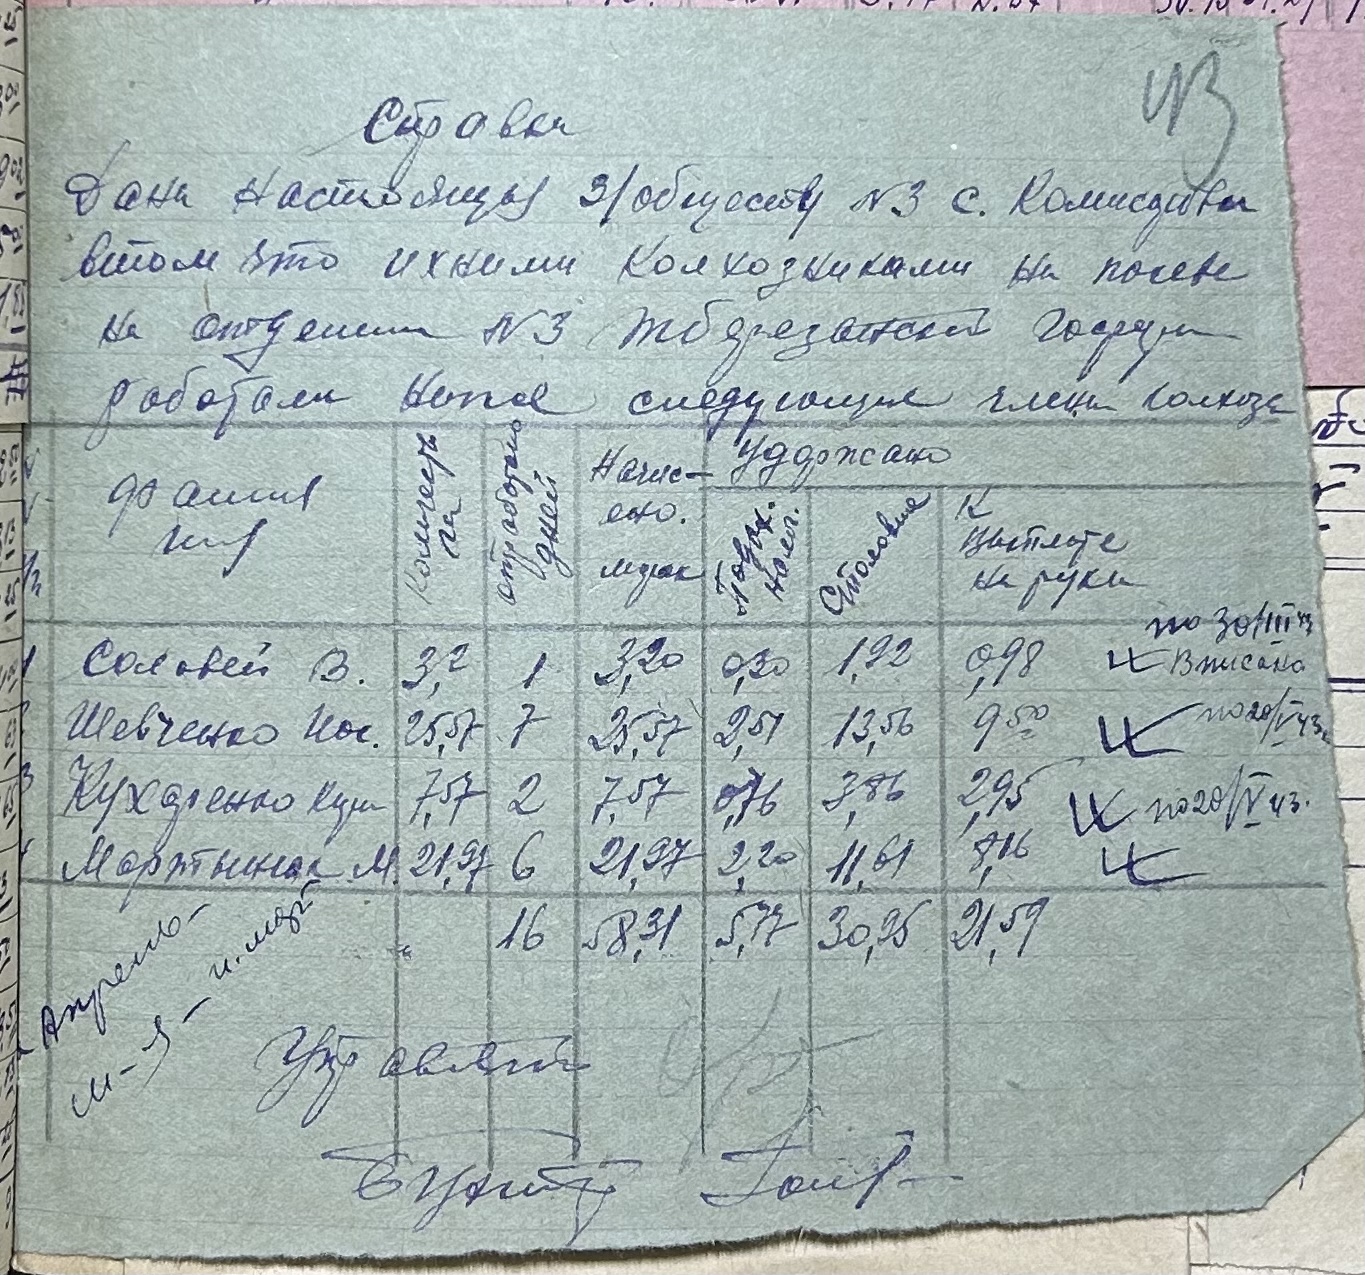 43
Справка
Дана настоящая З/обществу №3 с. Комисаровка
втом что ихними колхозниками на посеве
на отделении №3 Тберезанской
работали ниже следующие члены колхоза
Фамилия
Количество
отработано дней
Начислено. марок
Удержано
Подох. налог.
Столовые
К выплате на руки
по 30/III 43
1 Соловей В. 3,2 1 3,20 0,30 1,92 0,98 Вписано
Шевченко 25,57 7 25,57 2,51 13,56 9,50 по 20/V 43.
3 Кухаренко 7,57 2 7,57 0,76 3,86 2,95 по 20/V 43.
Мартынюк М. 21,97 6 21,97 2,20 11,61 8,16
16 58,31 5,77 30,95 21,59
Апрель
м-я- и. май
Управляющ